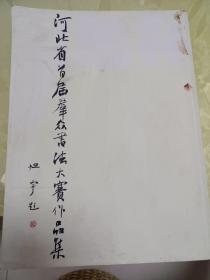 河北省首届群众书法大赛作品集